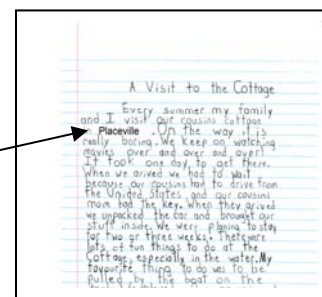 A Visit to the Cottage
Every summer my family
and I visit our cousins cottage
in Placeville . On the way it is
really boring. We keep on watching
movies over and over and over!
It took one day to get there.
When we arived we had to wait
because our cousins had to drive from
the United States and our cousins
mom had the key. When they arived
we unpacked the car and brought our
stuff inside. We were planing to stay
for two or three weeks. There are
lots of fun things to do at the
Cottage, especially in the water. My
favourite thing to do was to be
pulled by the boat on the